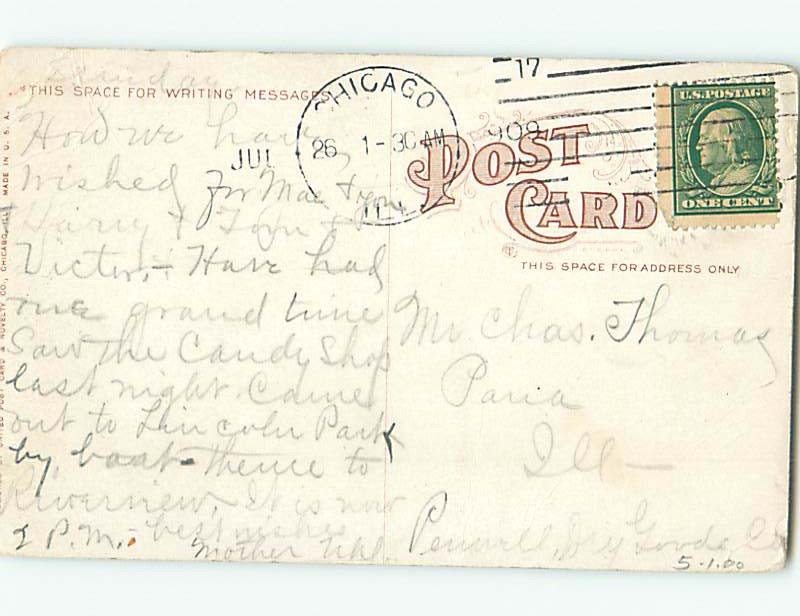 Sunday
THIS SPACE FOR WRITING MESSAGES
How we have
wished for Mae & you
Harry & Tom &
Victor, - Have had
one grand time
Saw the Candy Shop
last night. Came
out to Lincoln Park
by boat - thence to
Riverview. It is now
2 P.M. - best wishes
Mother
MADE IN U. S. A.
CHICAGO
JUL 26 1-30 AM 1909
17
ILL.
U.S. POSTAGE
ONE CENT
POST
CARD
THIS SPACE FOR ADDRESS ONLY
Mr. Chas. Thomas
Pana
Ill -
Penwell Dry Goods Co
5-1.00